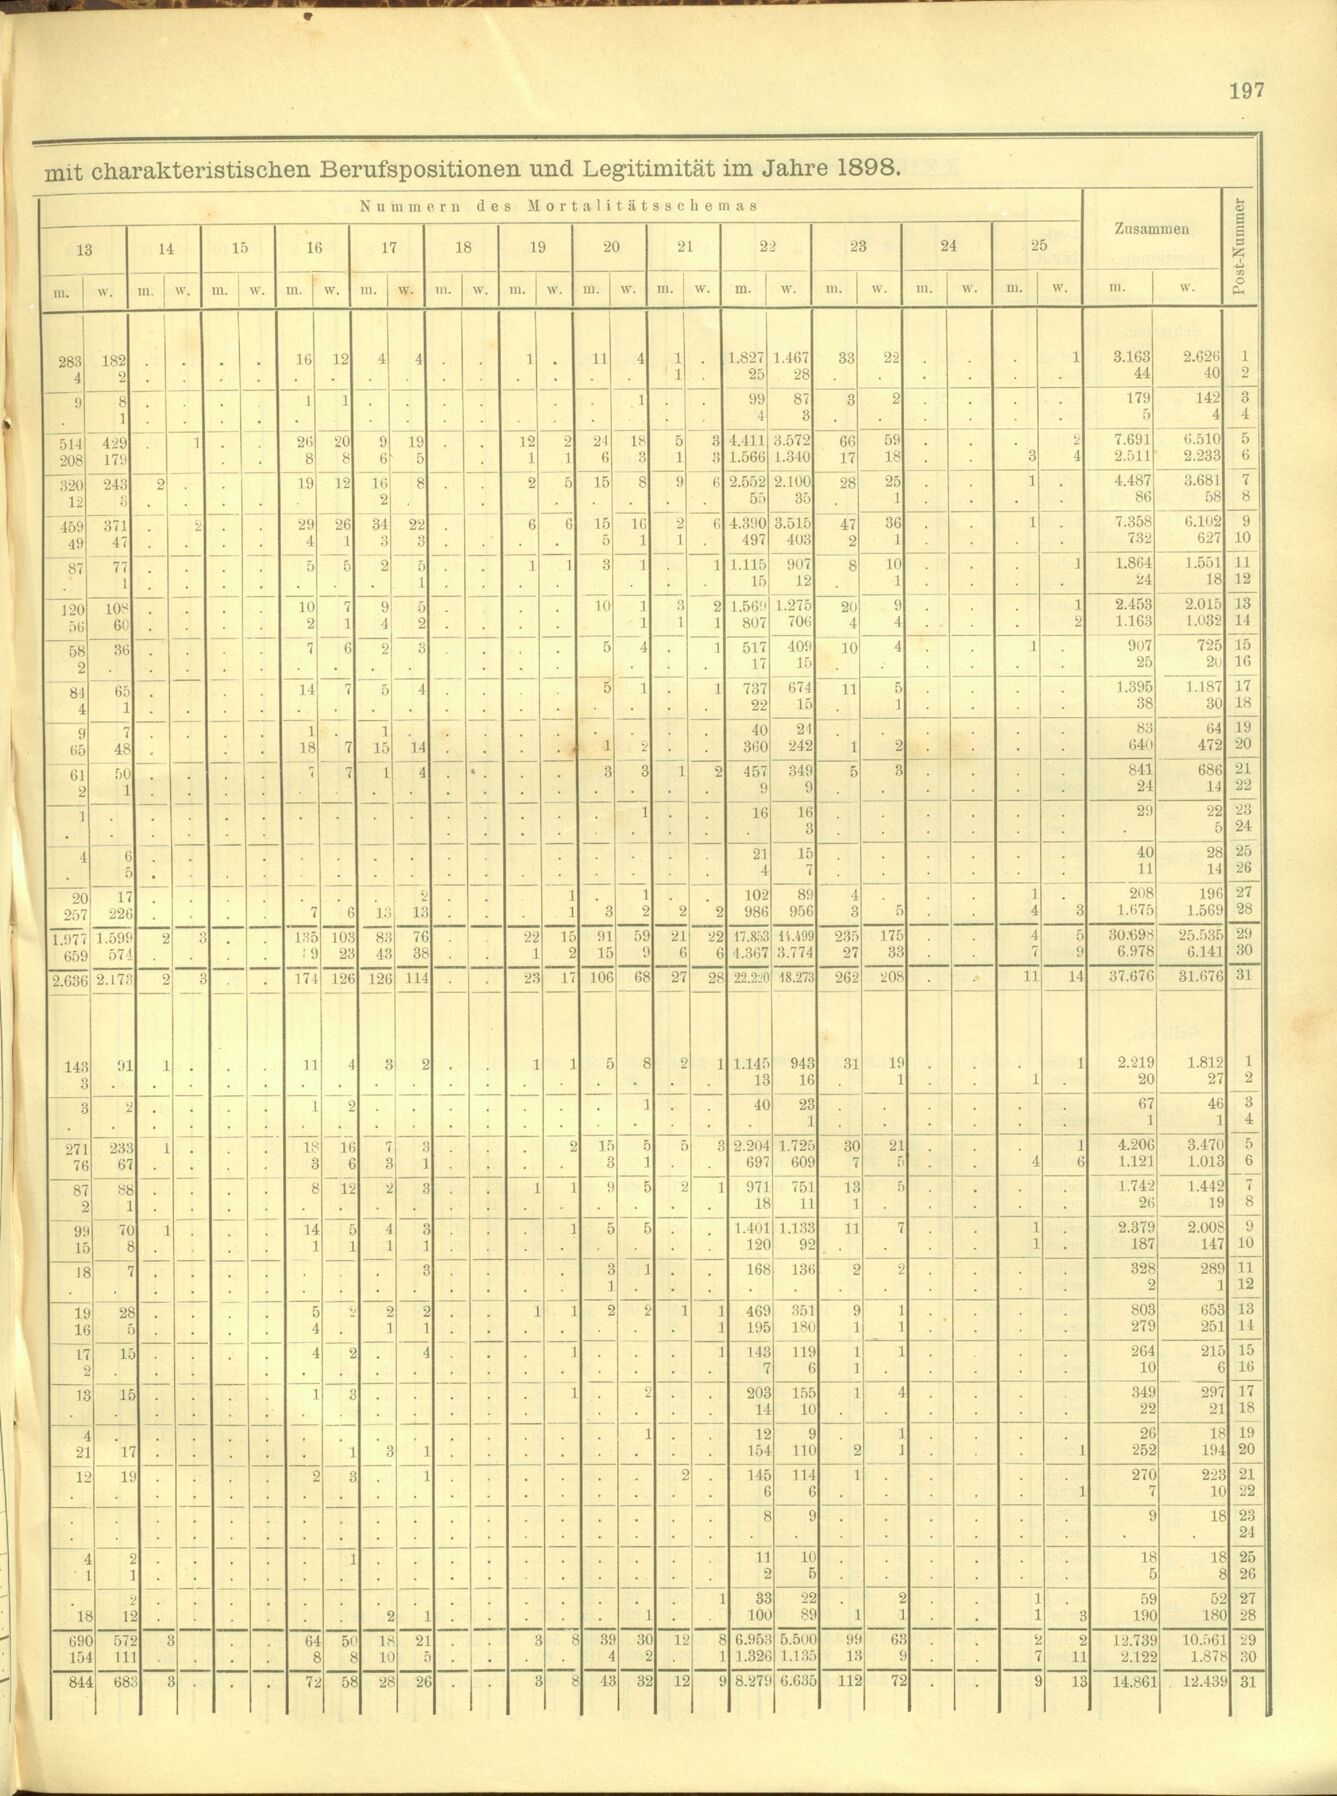 197
mit charakteristischen Berufspositionen und Legitimität im Jahre 1898.
Nummern des Mortalitätsschemas Zusammen Post-Nummer
13 14 15 16 17 18 19 20 21 22 23 24 25
m. w. m. w. m. w. m. w. m. w. m. w. m. w. m. w. m. w. m. w. m. w. m. w. m. w. m. w.
283 182 . . . . 16 12 4 4 . . 1 . 11 4 1 . 1.827 1.467 33 22 . . . 1 3.163 2.626 1
4 2 . . . . . . . . . . . . . . 1 . 25 28 . . . . . . 44 40 2
9 8 . . . . 1 1 . . . . . . . 1 . . 99 87 3 2 . . . . 179 142 3
. 1 . . . . . . . . . . . . . . . . 4 3 . . . . . . 5 4 4
514 429 . 1 . . 26 20 9 19 . . 12 2 24 18 5 3 4.411 3.572 66 59 . . . 2 7.691 6.510 5
208 179 . . . . 8 8 6 5 . . 1 1 6 3 1 3 1.566 1.340 17 18 . . 3 4 2.511 2.233 6
320 243 2 . . . 19 12 16 8 . . 2 5 15 8 9 6 2.552 2.100 28 25 . . 1 . 4.487 3.681 7
12 3 . . . . . . 2 . . . . . . . . . 55 35 . 1 . . . . 86 58 8
459 371 . 2 . . 29 26 34 22 . . 6 6 15 16 2 6 4.390 3.515 47 36 . . 1 . 7.358 6.102 9
49 47 . . . . 4 1 3 3 . . . . 5 1 1 . 497 403 2 1 . . . . 732 627 10
87 77 . . . . 5 5 2 5 . . 1 1 3 1 . 1 1.115 907 8 10 . . . 1 1.864 1.551 11
. 1 . . . . . . . 1 . . . . . . . . 15 12 . 1 . . . . 24 18 12
120 108 . . . . 10 7 9 5 . . . . 10 1 3 2 1.569 1.275 20 9 . . . 1 2.453 2.015 13
56 60 . . . . 2 1 4 2 . . . . . 1 1 1 807 706 4 4 . . . 2 1.163 1.032 14
58 36 . . . . 7 6 2 3 . . . . 5 4 . 1 517 409 10 4 . . 1 . 907 725 15
2 . . . . . . . . . . . . . . . . . 17 15 . . . . . . 25 20 16
84 65 . . . . 14 7 5 4 . . . . 5 1 . 1 737 674 11 5 . . . . 1.395 1.187 17
4 1 . . . . . . . . . . . . . . . . 22 15 . 1 . . . . 38 30 18
9 7 . . . . 1 . 1 . . . . . . . . . 40 24 . . . . . . 83 64 19
65 48 . . . . 18 7 15 14 . . . . 1 2 . . 360 242 1 2 . . . . 640 472 20
61 50 . . . . 7 7 1 4 . . . . 3 3 1 2 457 349 5 3 . . . . 841 686 21
2 1 . . . . . . . . . . . . . . . . 9 9 . . . . . . 24 14 22
1 . . . . . . . . . . . . . . 1 . . 16 16 . . . . . . 29 22 23
. . . . . . . . . . . . . . . . . . . 3 . . . . . . . 5 24
4 6 . . . . . . . . . . . . . . . . 21 15 . . . . . . 40 28 25
. 5 . . . . . . . . . . . . . . . . 4 7 . . . . . . 11 14 26
20 17 . . . . . . . 2 . . . 1 . 1 . . 102 89 4 . . . 1 . 208 196 27
257 226 . . . . 7 6 13 13 . . . 1 3 2 2 2 986 956 3 5 . . 4 3 1.675 1.569 28
1.977 1.599 2 3 . . 135 103 83 76 . . 22 15 91 59 21 22 17.853 14.499 235 175 . . 4 5 30.698 25.535 29
659 574 . . . . 9 23 43 38 . . 1 2 15 9 6 6 4.367 3.774 27 33 . . 7 9 6.978 6.141 30
2.636 2.173 2 3 . . 174 126 126 114 . . 23 17 106 68 27 28 22.220 18.273 262 208 . . 11 14 37.676 31.676 31
143 91 1 . . . 11 4 3 2 . . 1 1 5 8 2 1 1.145 943 31 19 . . . 1 2.219 1.812 1
3 . . . . . . . . . . . . . . . . . 13 16 . 1 . . 1 . 20 27 2
3 2 . . . . 1 2 . . . . . . . 1 . . 40 23 . . . . . . 67 46 3
. . . . . . . . . . . . . . . . . . . 1 . . . . . . 1 1 4
271 233 1 . . . 18 16 7 3 . . . 2 15 5 5 3 2.204 1.725 30 21 . . . 1 4.206 3.470 5
76 67 . . . . 3 6 3 1 . . . . 3 1 . . 697 609 7 5 . . 4 6 1.121 1.013 6
87 88 . . . . 8 12 2 3 . . 1 1 9 5 2 1 971 751 13 5 . . . . 1.742 1.442 7
2 1 . . . . . . . . . . . . . . . . 18 11 1 . . . . . 26 19 8
99 70 1 . . . 14 5 4 3 . . . 1 5 5 . . 1.401 1.133 11 7 . . 1 . 2.379 2.008 9
15 8 . . . . 1 1 1 1 . . . . . . . . 120 92 . . . . 1 . 187 147 10
18 7 . . . . . . . 3 . . . . 3 1 . . 168 136 2 2 . . . . 328 289 11
. . . . . . . . . . . . . . 1 . . . . . . . . . . . 2 1 12
19 28 . . . . 5 2 2 2 . . 1 1 2 2 1 1 469 351 9 1 . . . . 803 653 13
16 5 . . . . 4 . 1 1 . . . . . . . 1 195 180 1 1 . . . . 279 251 14
17 15 . . . . 4 2 . 4 . . . 1 . . . 1 143 119 1 1 . . . . 264 215 15
2 . . . . . . . . . . . . . . . . . 7 6 1 . . . . . 10 6 16
13 15 . . . . 1 3 . . . . . 1 . 2 . . 203 155 1 4 . . . . 349 297 17
. . . . . . . . . . . . . . . . . . 14 10 . . . . . . 22 21 18
4 . . . . . . . . . . . . . . 1 . . 12 9 . 1 . . . . 26 18 19
21 17 . . . . . 1 3 1 . . . . . . . . 154 110 2 1 . . . 1 252 194 20
12 19 . . . . 2 3 . 1 . . . . . . 2 . 145 114 1 . . . . . 270 223 21
. . . . . . . . . . . . . . . . . . 6 6 . . . . . 1 7 10 22
. . . . . . . . . . . . . . . . . . 8 9 . . . . . . 9 18 23
. . . . . . . . . . . . . . . . . . . . . . . . . . . . 24
4 2 . . . . . 1 . . . . . . . . . . 11 10 . . . . . . 18 18 25
1 1 . . . . . . . . . . . . . . . . 2 5 . . . . . . 5 8 26
. 2 . . . . . . . . . . . . . . . 1 33 22 . 2 . . 1 . 59 52 27
18 12 . . . . . . 2 1 . . . . . 1 . . 100 89 1 1 . . 1 3 190 180 28
690 572 3 . . . 64 50 18 21 . . 3 8 39 30 12 8 6.953 5.500 99 63 . . 2 2 12.739 10.561 29
154 111 . . . . 8 8 10 5 . . . . 4 2 . 1 1.326 1.135 13 9 . . 7 11 2.122 1.878 30
844 683 3 . . . 72 58 28 26 . . 3 8 43 32 12 9 8.279 6.635 112 72 . . 9 13 14.861 12.439 31